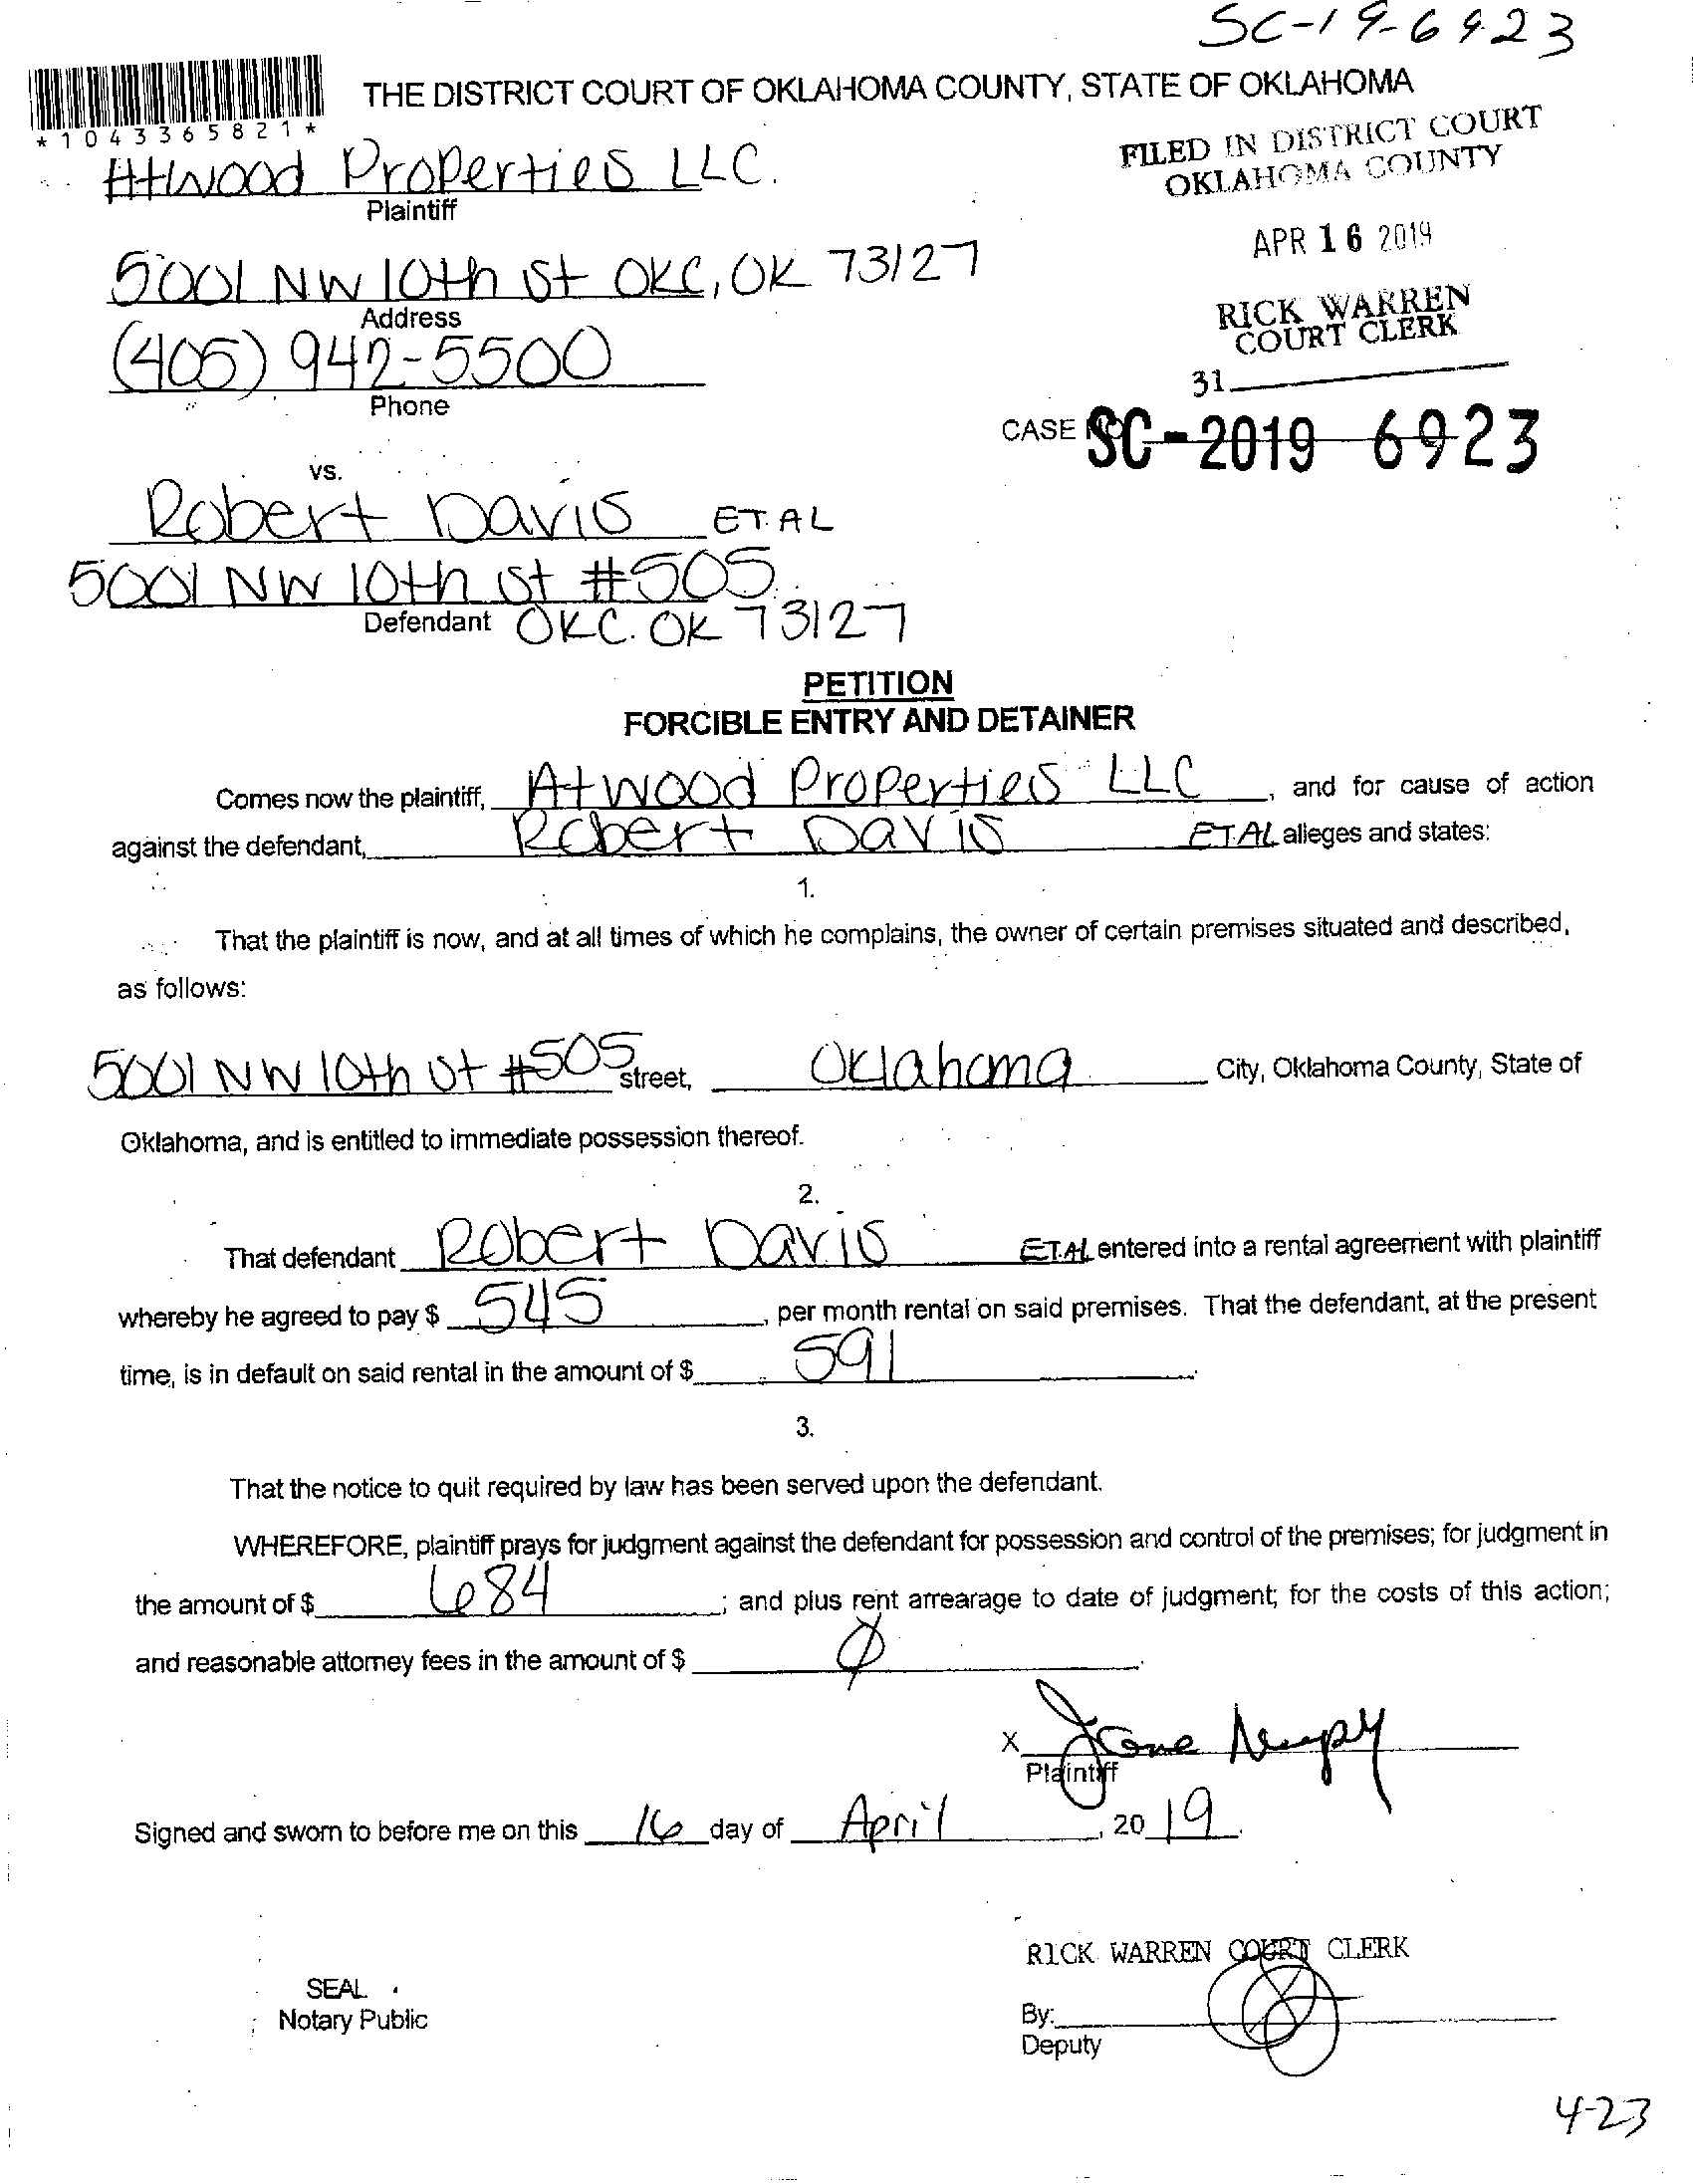 SC-19-6923
THE DISTRICT COURT OF OKLAHOMA COUNTY, STATE OF OKLAHOMA
*1043365821*
FILED IN DISTRICT COURT
OKLAHOMA COUNTY
Atwood Properties LLC.
Plaintiff
APR 16 2019
5001 NW 10th St OKC, OK 73127
Address
RICK WARREN
COURT CLERK
(405) 942-5500
Phone
31
CASE NO SC-2019 6923
vs.
Robert Davis ET.AL
5001 NW 10th St #505
Defendant OKC. OK 73127
PETITION
FORCIBLE ENTRY AND DETAINER
Comes now the plaintiff, Atwood Properties LLC, and for cause of action
against the defendant, Robert Davis ET.AL alleges and states:
1.
That the plaintiff is now, and at all times of which he complains, the owner of certain premises situated and described,
as follows:
5001 NW 10th St #505 street, Oklahoma City, Oklahoma County, State of
Oklahoma, and is entitled to immediate possession thereof.
2.
That defendant Robert Davis ET.AL entered into a rental agreement with plaintiff
whereby he agreed to pay $ 545, per month rental on said premises. That the defendant, at the present
time, is in default on said rental in the amount of $ 591.
3.
That the notice to quit required by law has been served upon the defendant.
WHEREFORE, plaintiff prays for judgment against the defendant for possession and control of the premises; for judgment in
the amount of $ 684; and plus rent arrearage to date of judgment; for the costs of this action;
and reasonable attorney fees in the amount of $ Ø.
X
Plaintiff
Signed and sworn to before me on this 16 day of April, 20 19.
RICK WARREN COURT CLERK
SEAL
Notary Public
By:
Deputy
4-23